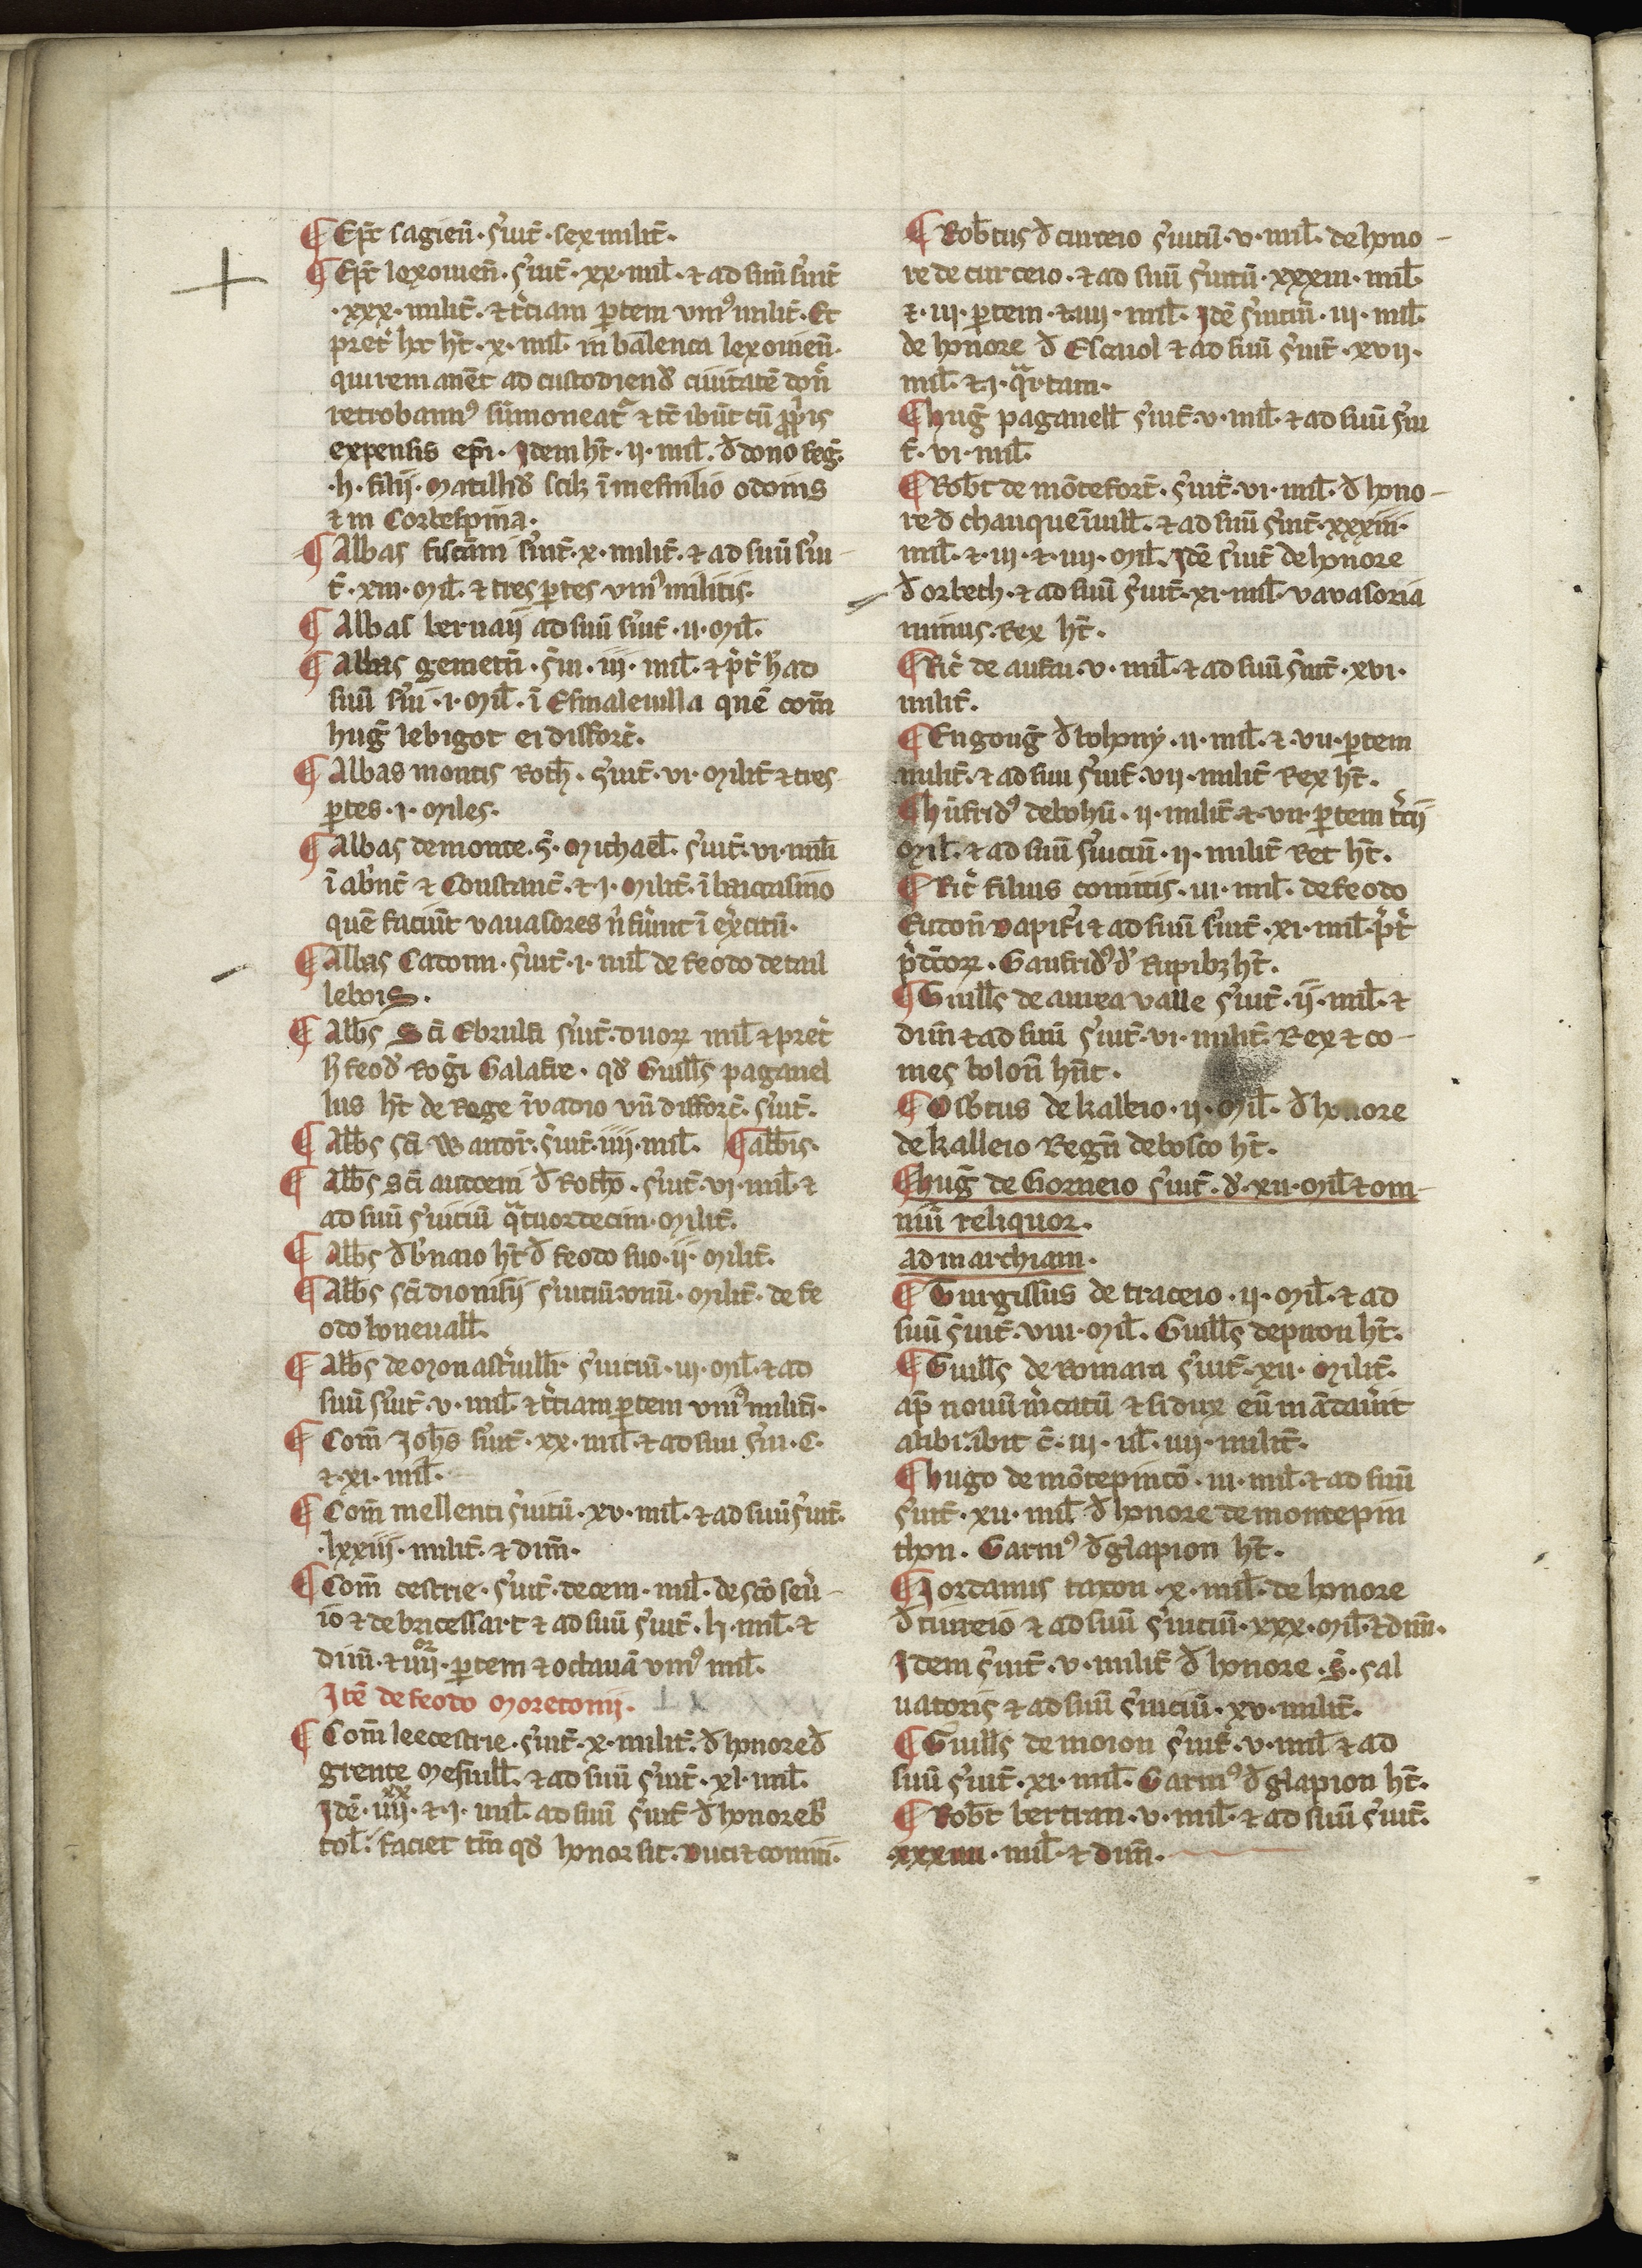 ¶ Ep̄c sagien̄. s̓uic̄. sex milit̄.
¶ Ep̄c lexouien̄. s̓uic̄. xx. mil̄. ⁊ ad suū s̓uic̄
.xxx. milit̄. ⁊ t̓ciam ꝑtem vniꝰ milit̄. Et
pret̓ hoc ht̄. x. mil̄. in banlenca lexouien̄.
qui remanēt ad custodiend̄ ciuitatē don̄
retrobannꝰ sūmoneat᷑ ⁊ tc̄ ibūt cū ꝓp̓is
expensis ep̄i. Idem ht̄. ii. mil̄. đ dono reḡ.
.h. filij. Matilld̄ scilꝫ ī mesnilio odonis
⁊ in Corbespina.
¶ Abbas fiscāni s̓uic̄. x. milit̄. ⁊ ad suū s̓ui-
c̄. xiii. Mil̄. ⁊ tres ꝑtes vniꝰ militis.
¶ Abbas bernaij ad suū s̓uic̄. ii. Mil̄.
¶ Abbas gemetn̄. s̓ui. iij. mil̄. ⁊ p̓t̓ h̄ ad
suū s̓ui. i. Mil̄. ī Esmaleuilla quē com̄
huḡ lebigot ei diffort̄.
¶ Abbas montis Roth̄. s̓uic̄. vi. Milit̄ ⁊ tres
ꝑtes. i. Miles.
¶ Abbas de monte. S̄. Michael̄. s̓uic̄. vi. mil̄i
ī abr̄nc̄ ⁊ Constanc̄. ⁊ i. Milit̄. ī baiocasino
quē faciūt vauasores n̄ fu̓int ī ex̓citū.
¶ Abbas Cadomi. s̓uic̄. i. mil̄ de feodo de tail
lebois.
¶ Abb̄s Sc̄i Ebrulfi s̓uic̄. duoꝝ mil̄ ⁊ pret̓
h̄ feod̄ Rog̓i Galafre. qd̄ Guill̄s paganel
lus ht̄ de Rege ī vadio vn̄ diffort̄. s̓uic̄.
¶ Abb̄s sc̄i Wandr̄. s̓uic̄. iiij. mil̄. ¶ abb̄is.
¶ Abb̄s Sc̄i audoeni đ Rotho. s̓uic̄. vj. mil̄. ⁊
ad suū s̓uiciū qᵃtuordecim. Milit̄.
¶ Abb̄s đ b̓naio ht̄ đ feodo suo. ij. Milit̄.
¶ Abb̄s sc̄i dionisij s̓uiciū vnū. Milit̄. de fe
odo boneuall̄.
¶ Abb̄s de Monast̓uill̄. s̓uiciū. iii. Mil̄. ⁊ ad
suū s̓uic̄. v. mil̄. ⁊ t̓ciam ꝑtem vniꝰ milit̄.
¶ Com̄ Joh̄s s̓uic̄. xx. mil̄. ⁊ ad suū s̓ui. C.
⁊. xi. mil̄.
¶ Com̄ mellenti s̓uitiū. xv. mil̄. ⁊ ad suū s̓uic̄.
.lxxiij. milit̄. ⁊ dim̄.
¶ Com̄ cestrie. s̓uic̄. decem. mil̄. de sc̄o seu̓-
io ⁊ de bricessart ⁊ ad suū s̓uic̄. li. mil̄. ⁊
dim̄. ⁊ iiijᵒʳ. ꝑtem ⁊ octauā vniꝰ mil̄.
Itē de feodo Moretonij.
¶ Com̄ leecestrie. s̓uic̄. x. milit̄. đ honore đ
grente Mesnill̄. ⁊ ad suū s̓uic̄. xl. mil̄.
Idē. iiijˣˣ. ⁊. i. mil̄. ad suū s̓uic̄ đ honore b̓
tol̄. faciet tm̄ qd̄ honor sit. Duci ⁊ comiti.
¶ Rob̄tus đ curceio s̓uiciū. v. mil̄. de hono-
re de curceio. ⁊ ad suū s̓uiciū. xxxiii. mil̄.
⁊. iij. ꝑtem. ⁊ iiij. mil̄. Idē s̓uiciū. iij. mil̄.
de honore đ Escauol ⁊ ad suū s̓uic̄. xvij.
mil̄. ⁊ i. qᵃrtam.
¶ huḡ paganell̄ s̓uic̄. v. mil̄. ⁊ ad suū s̓ui
c̄. vi. mil̄.
¶ Rob̄t de mōtefort̄. s̓uic̄. vi. mil̄. đ hono-
re đ chauqueīuill̄. ⁊ ad suū s̓uic̄. xxxiii.
mil̄. ⁊. iij. ⁊. iiij. Mil̄. Idē s̓uic̄ de honore
đ orbech. ⁊ ad suū s̓uic̄. xi. mil̄. vauasoria
minus. Rex ht̄.
¶ Ric̄ de aufai. v. mil̄. ⁊ ad suū s̓uic̄. xvi.
milit̄.
¶ Engouḡ đ bohony. ii. mil̄. ⁊. vii. ꝑtem
milit̄. ⁊ ad suū s̓uic̄. vij. milit̄ Rex ht̄.
¶ hūfridꝰ de bohū. ij. milit̄ ⁊. vii. ꝑtem t̓cij
Mil̄. ⁊ ad suū s̓uiciū. ij. milit̄ Ret ht̄.
¶ Ric̄ filius comitis. iii. mil̄. de feodo
Eudon̄ Dapif̓i ⁊ ad suū s̓uic̄. xi. mil̄. p̓t̓
p̓dc̄oꝝ. Gaufridꝰ đ Rupibꝫ ht̄.
¶ Guill̄s de aurea valle s̓uic̄. ij. mil̄. ⁊
dim̄ ⁊ ad suū s̓uic̄. vi. milit̄. Rex ⁊ co-
mes bolon̄ hn̄t.
¶ Osb̄tus de kalleio. ij. Mil̄. đ honore
de kalleio Regn̄ de bosco ht̄.
¶ huḡ de Gorneio s̓uic̄. đ. xii. Mil̄ ⁊ om-
niū reliquor.
ad marchiam.
¶ Turgillus de traceio. ij. Mil̄. ⁊ ad
suū s̓uic̄. viii. Mil̄. Guill̄s de piron ht̄.
¶ Guill̄s de Romara s̓uic̄. xii. Milit̄.
ap̄ nouū m̓catū ⁊ si dux eū mādau̓it
alibi: ibit c̄. iij. ul̄. iiij. milit̄.
¶ hugo de mōtepincō. iii. mil̄. ⁊ ad suū
s̓uic̄. xii. mil̄ đ honore de montepin
thon. Garinꝰ đ glapion ht̄.
¶ Jordanus taxon. x. mil̄. de honore
đ cuireio ⁊ ad suū s̓uiciū. xxx. Mil̄. ⁊ dim̄.
Idem s̓uic̄. v. milit̄ đ honore. S̄. sal
uatoris ⁊ ad suū s̓uiciū. xv. milit̄.
¶ Guill̄s de moion s̓uic̄. v. mil̄ ⁊ ad
suū s̓uic̄. xi. mil̄. Garinꝰ đ glapion ht̄.
¶ Rob̄t bertran. v. mil̄. ⁊ ad suū s̓uic̄.
.xxxiii. mil̄. ⁊ dim̄.